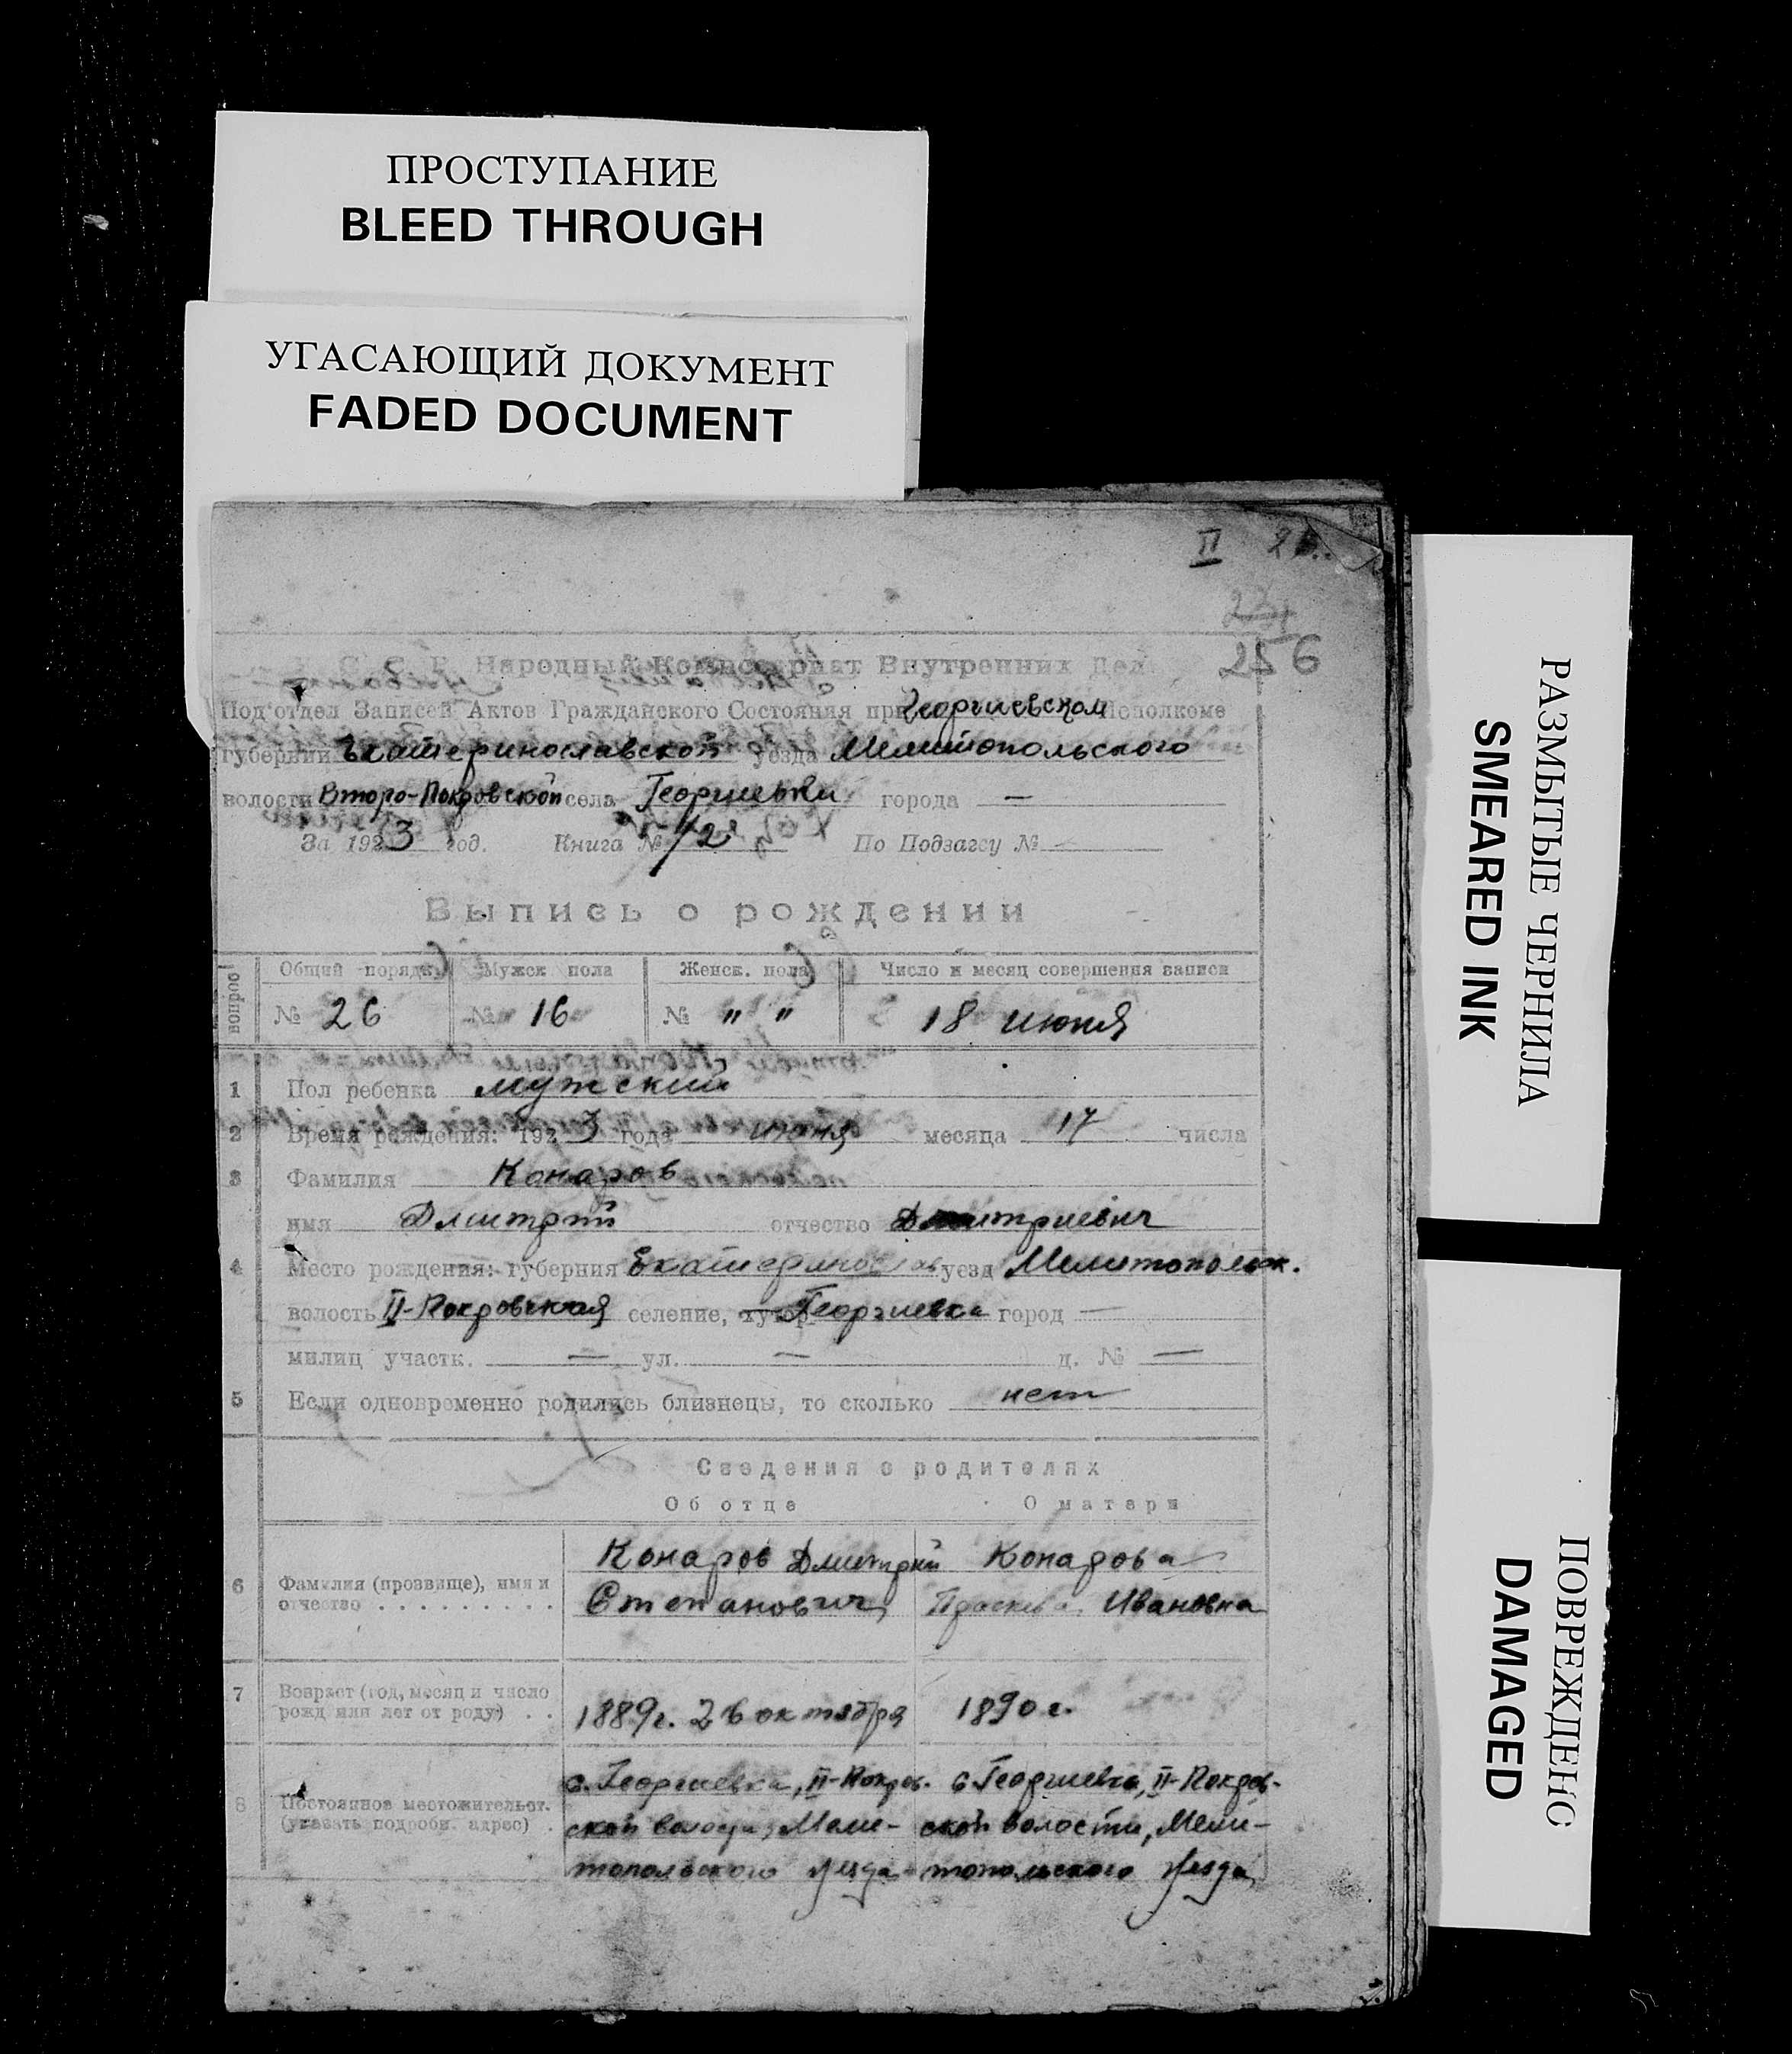 ПРОСТУПАНИЕ
BLEED THROUGH
УГАСАЮЩИЙ ДОКУМЕНТ
FADED DOCUMENT
II
256
С. С. Р. Народный Комиссариат Внутренних Дел
Под'отдел Записей Актов Гражданского Состояния при Георгиевском Исполкоме
губернии Екатеринославской уезда Мелитопольского
волости Второ-Покровской села Георгиевки города —
За 1923 год. Книга № 12 По Подзагсу №
Выпись о рождении
вопрос Общий порядк. Мужск пола Женск. пола Число и месяц совершения записи
№ 26 № 16 № " " 18 июня
1 Пол ребенка мужский
2 Время рождения: 1923 года июня месяца 17 числа
3 Фамилия Конаров
имя Дмитрий отчество Дмитриевич
4 Место рождения: губерния Екатеринослав уезд Мелитопольск.
волость II-Покровская селение, хутор Георгиевка город —
милиц участк. — ул. — д. № —
5 Если одновременно родились близнецы, то сколько нет
Сведения о родителях
Об отце О матери
6 Фамилия (прозвище), имя и отчество . . . . . . . . .
Конаров Дмитрий
Степанович
Конарова
Праскева Ивановна
7 Возраст (год, месяц и число рожд или лет от роду) . .
1889г. 26 октября
1890 г.
8 Постоянное местожительст. (указать подробн. адрес) .
с. Георгиевка, II-Покров-
ской волости, Мели-
топольского уезда
с. Георгиевка, II-Покров-
ской волости, Мели-
топольского уезда
РАЗМЫТЫЕ ЧЕРНИЛА
SMEARED INK
ПОВРЕЖДЕНО
DAMAGED